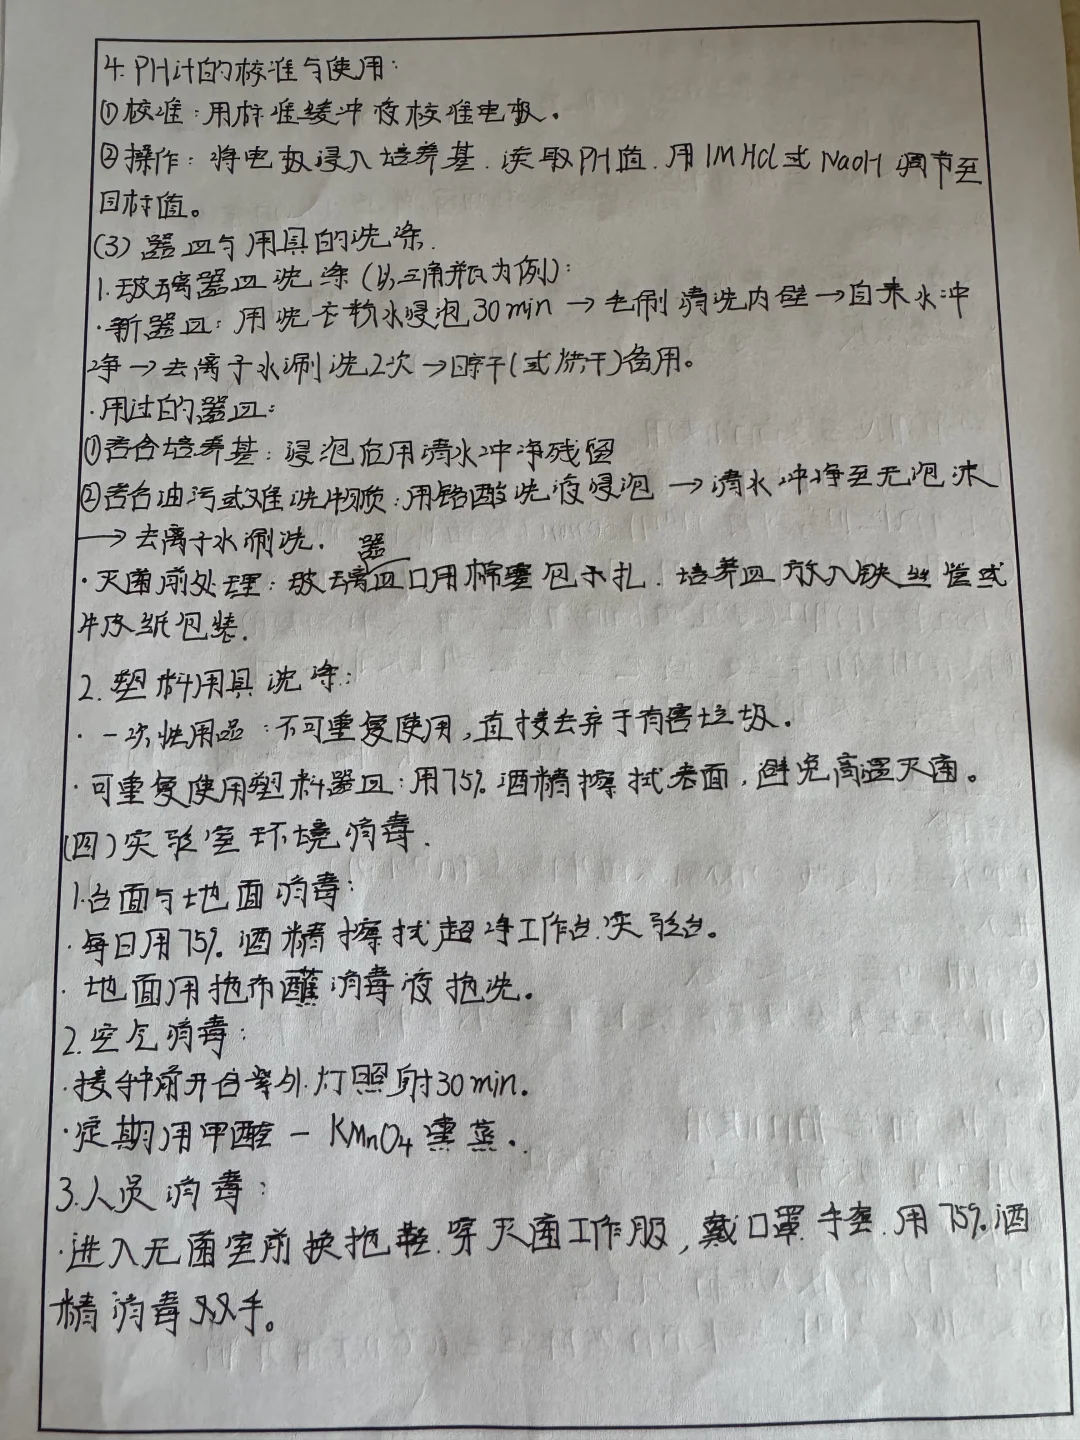 4. PH计的校准与使用:
①校准:用标准缓冲液校准电极。
②操作:将电极浸入培养基.读取PH值.用1M HCl或NaOH调节至
目标值。
(3)器皿与用具的洗涤.
1.玻璃器皿洗涤(以三角瓶为例):
·新器皿:用洗衣粉水浸泡30min→毛刷清洗内壁→自来水冲
净→去离子水涮洗2次→晾干(或烘干)备用。
·用过的器皿:
①含培养基:浸泡后用清水冲净残留
②含油污或难洗物质:用铬酸洗液浸泡→清水冲净至无泡沫
→去离子水涮洗.
·灭菌前处理:玻璃器皿口用棉塞包扎.培养皿放入铁丝筐或
牛皮纸包装.
2.塑料用具洗涤:
·一次性用品:不可重复使用,直接丢弃于有害垃圾.
·可重复使用塑料器皿:用75%酒精擦拭表面,避免高温灭菌。
(四)实验室环境消毒.
1.台面与地面消毒:
·每日用75%酒精擦拭超净工作台.实验台。
·地面用拖布蘸消毒液拖洗。
2.空气消毒:
·接种前开启紫外灯照射30min.
·定期用甲醛-KMnO4熏蒸.
3.人员消毒:
·进入无菌室前换拖鞋.穿灭菌工作服,戴口罩.手套.用75%酒
精消毒双手。